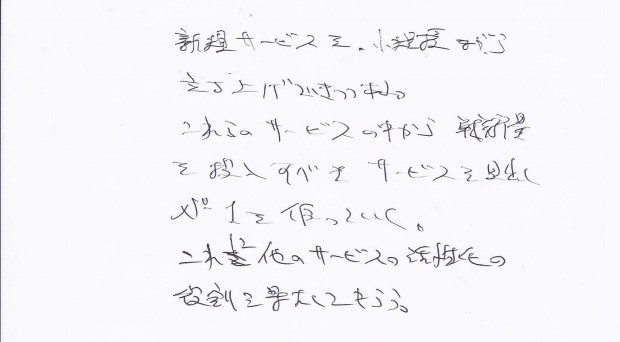 新規サービスを、小規模ながら
立ち上げていきつつある。
これらのサービスの中から 戦略
を投入すべき サービスを見出し
No1を作っていく。
これに他のサービスの活性化の
役割を果たしてもらう。